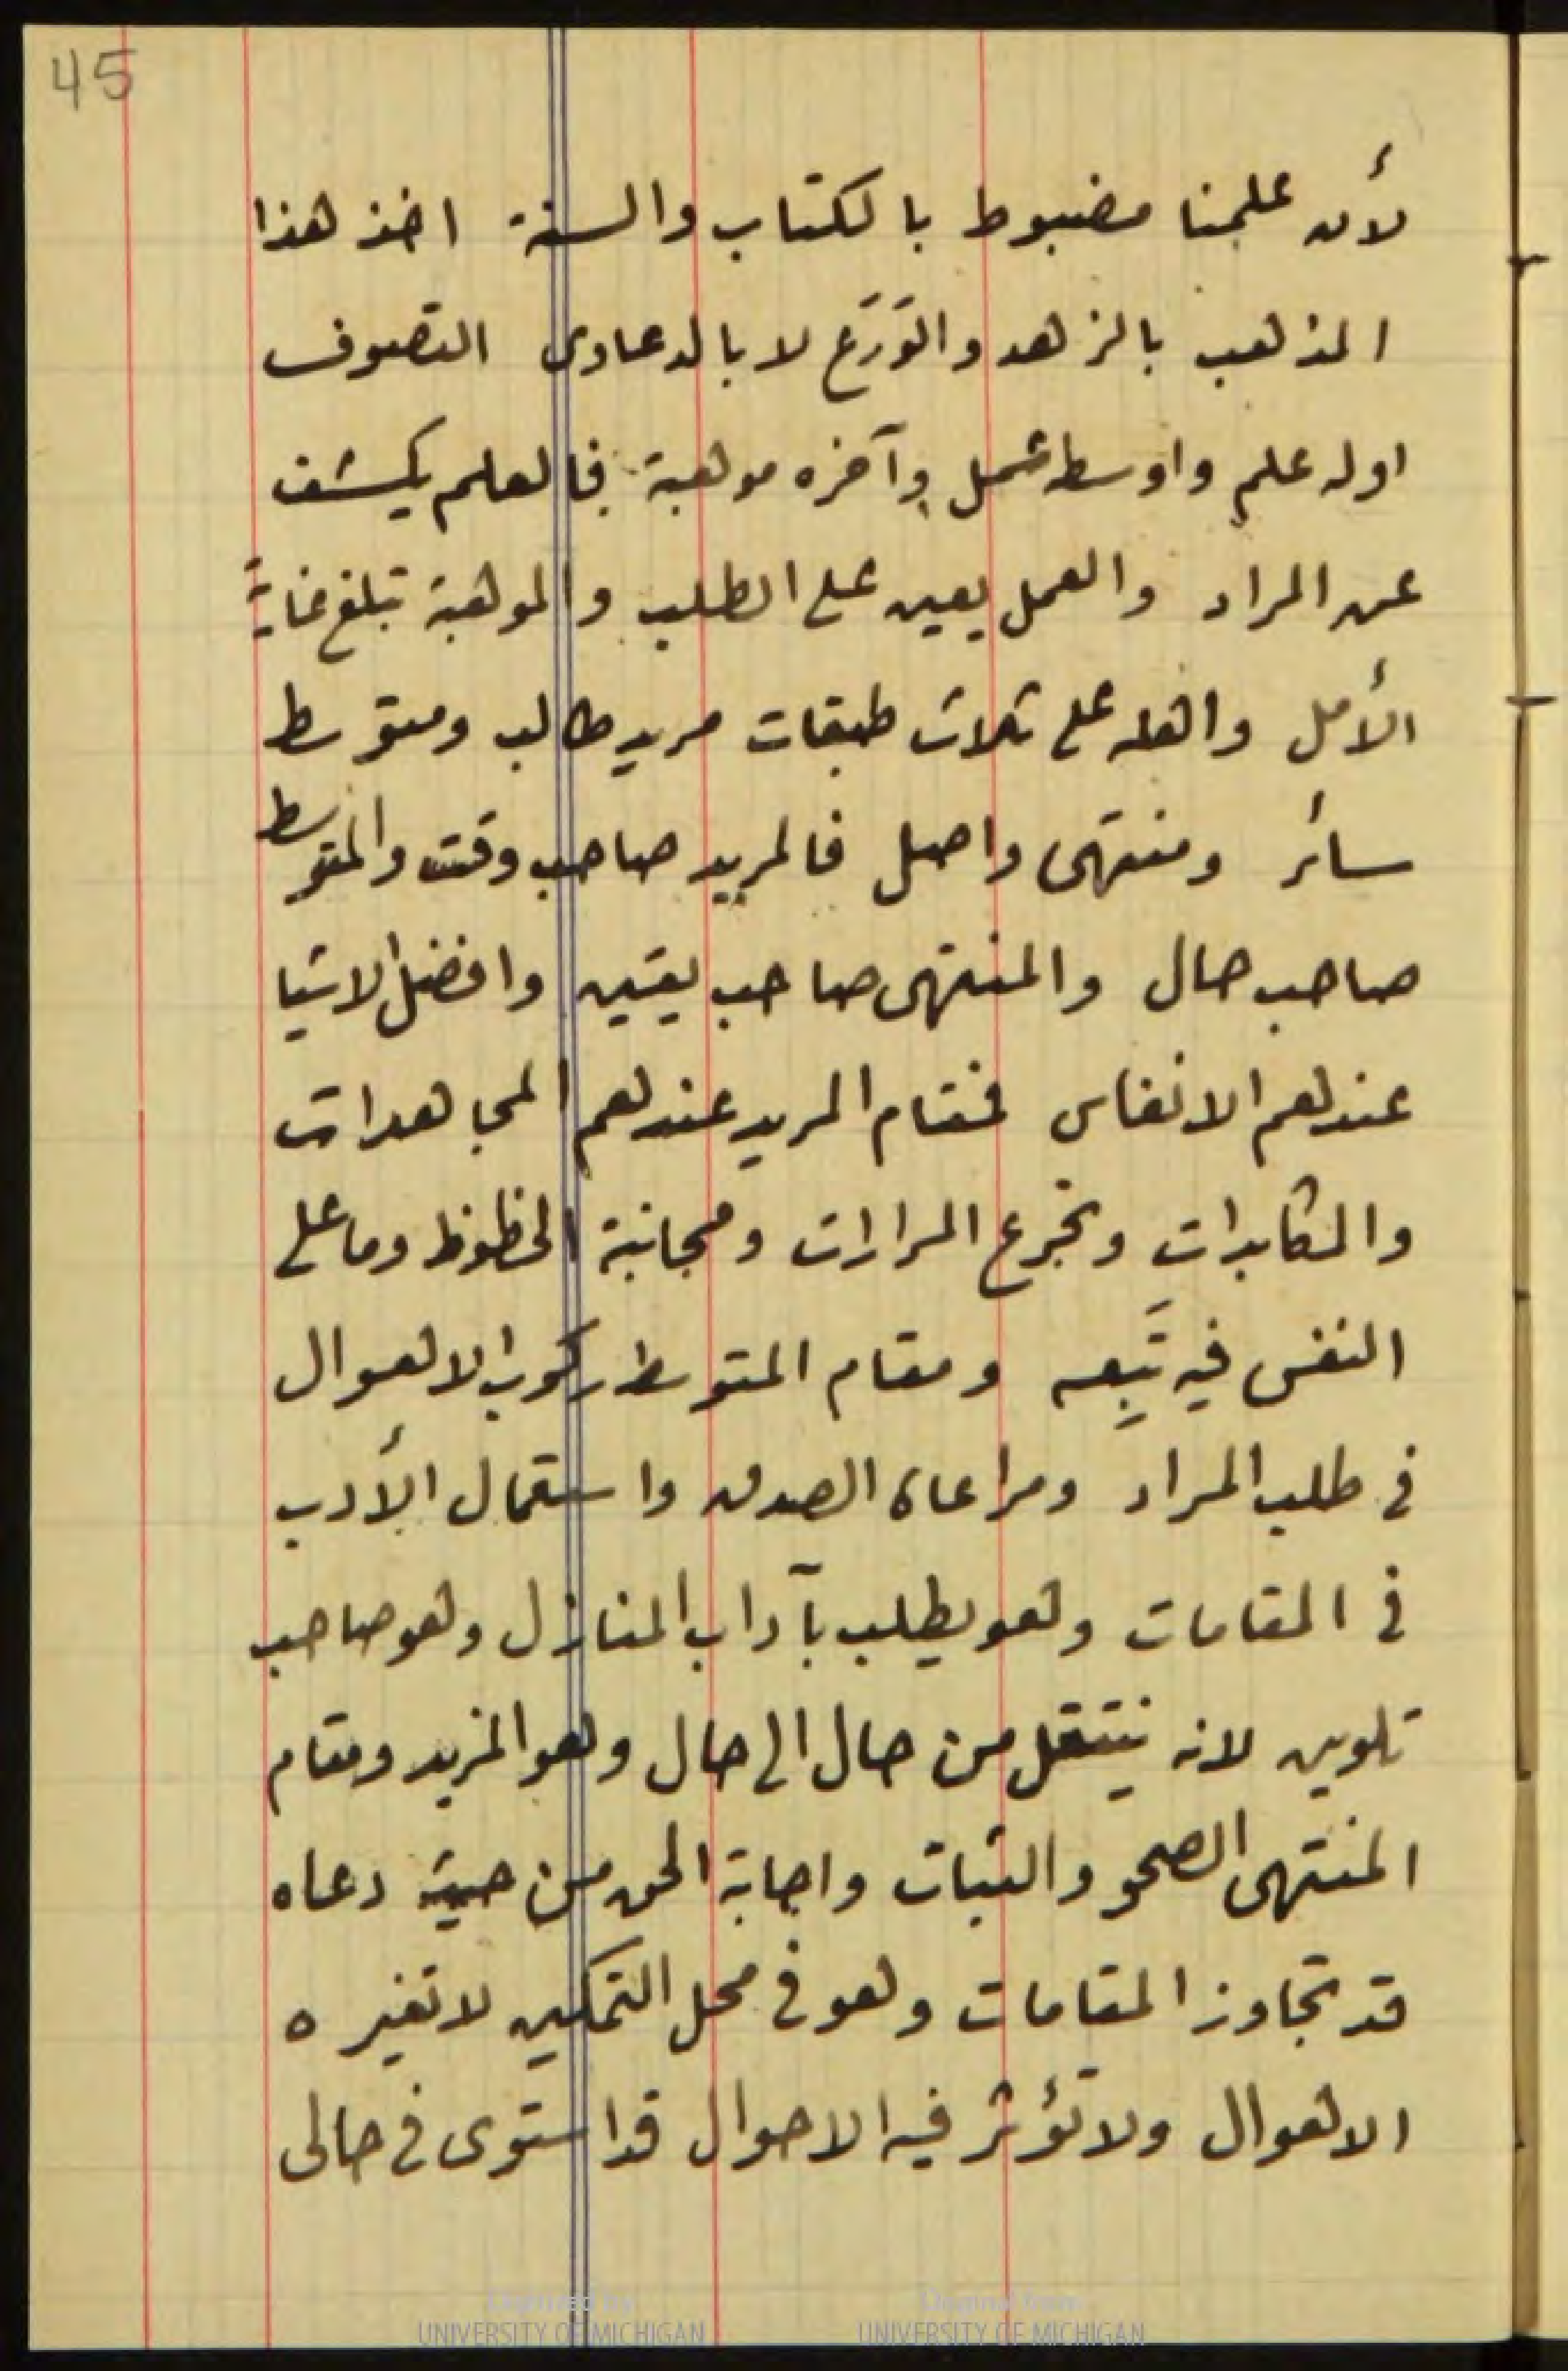 45
لأن علمنا مضبوط بالكتاب والسنة اخذ هذا
المذهب بالزهد والتورّع لا بالدعاوى التصوف
اوله علم واوسطه عمل وآخره موهبة فالعلم يكشف
عن المراد والعمل يعين على الطلب والموهبة تبلغ غاية
الأمل واهله على ثلاث طبقات مريد طالب ومتوسط
سائر ومنتهى واصل فالمريد صاحب وقت والمتوسط
صاحب حال والمنتهى صاحب يقين وافضل الاشيا
عندهم الانفاس فمقام المريد عندهم المجاهدات
والمكابدات وتجرع المرارات ومجانبة الحظوظ وما على
النفس فيه تَبِعه ومقام المتوسط ركوب الاهوال
فى طلب المراد ومراعاة الصدق واستعمال الأدب
فى المقامات وهو يطلب بآداب المنازل وهو صاحب
تلوين لانه ينتقل من حال الى حال وهو المزيد ومقام
المنتهى الصحو والثبات واجابة الحق من حيث دعاه
قد تجاوز المقامات وهو فى محل التمكين لا تغيره
الاهوال ولا تؤثر فيه الاحوال قد استوى فى حالى
Digitized by UNIVERSITY OF MICHIGAN
Original from UNIVERSITY OF MICHIGAN